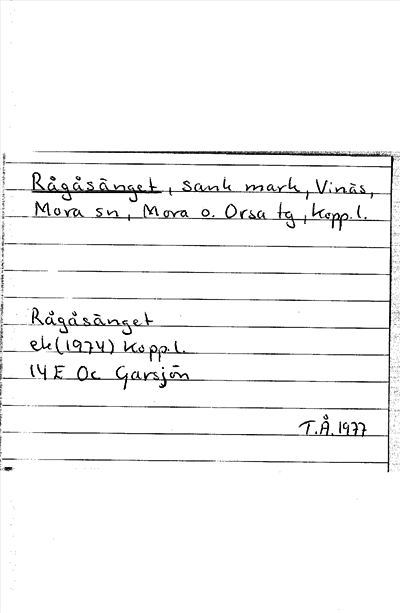 Rågåsänget, sank mark, Vinäs,
Mora sn, Mora o. Orsa tg, Kopp.l.
Rågåsänget
ek(1974) Kopp.l.
14E Oc Garsjön
T.Å.1977